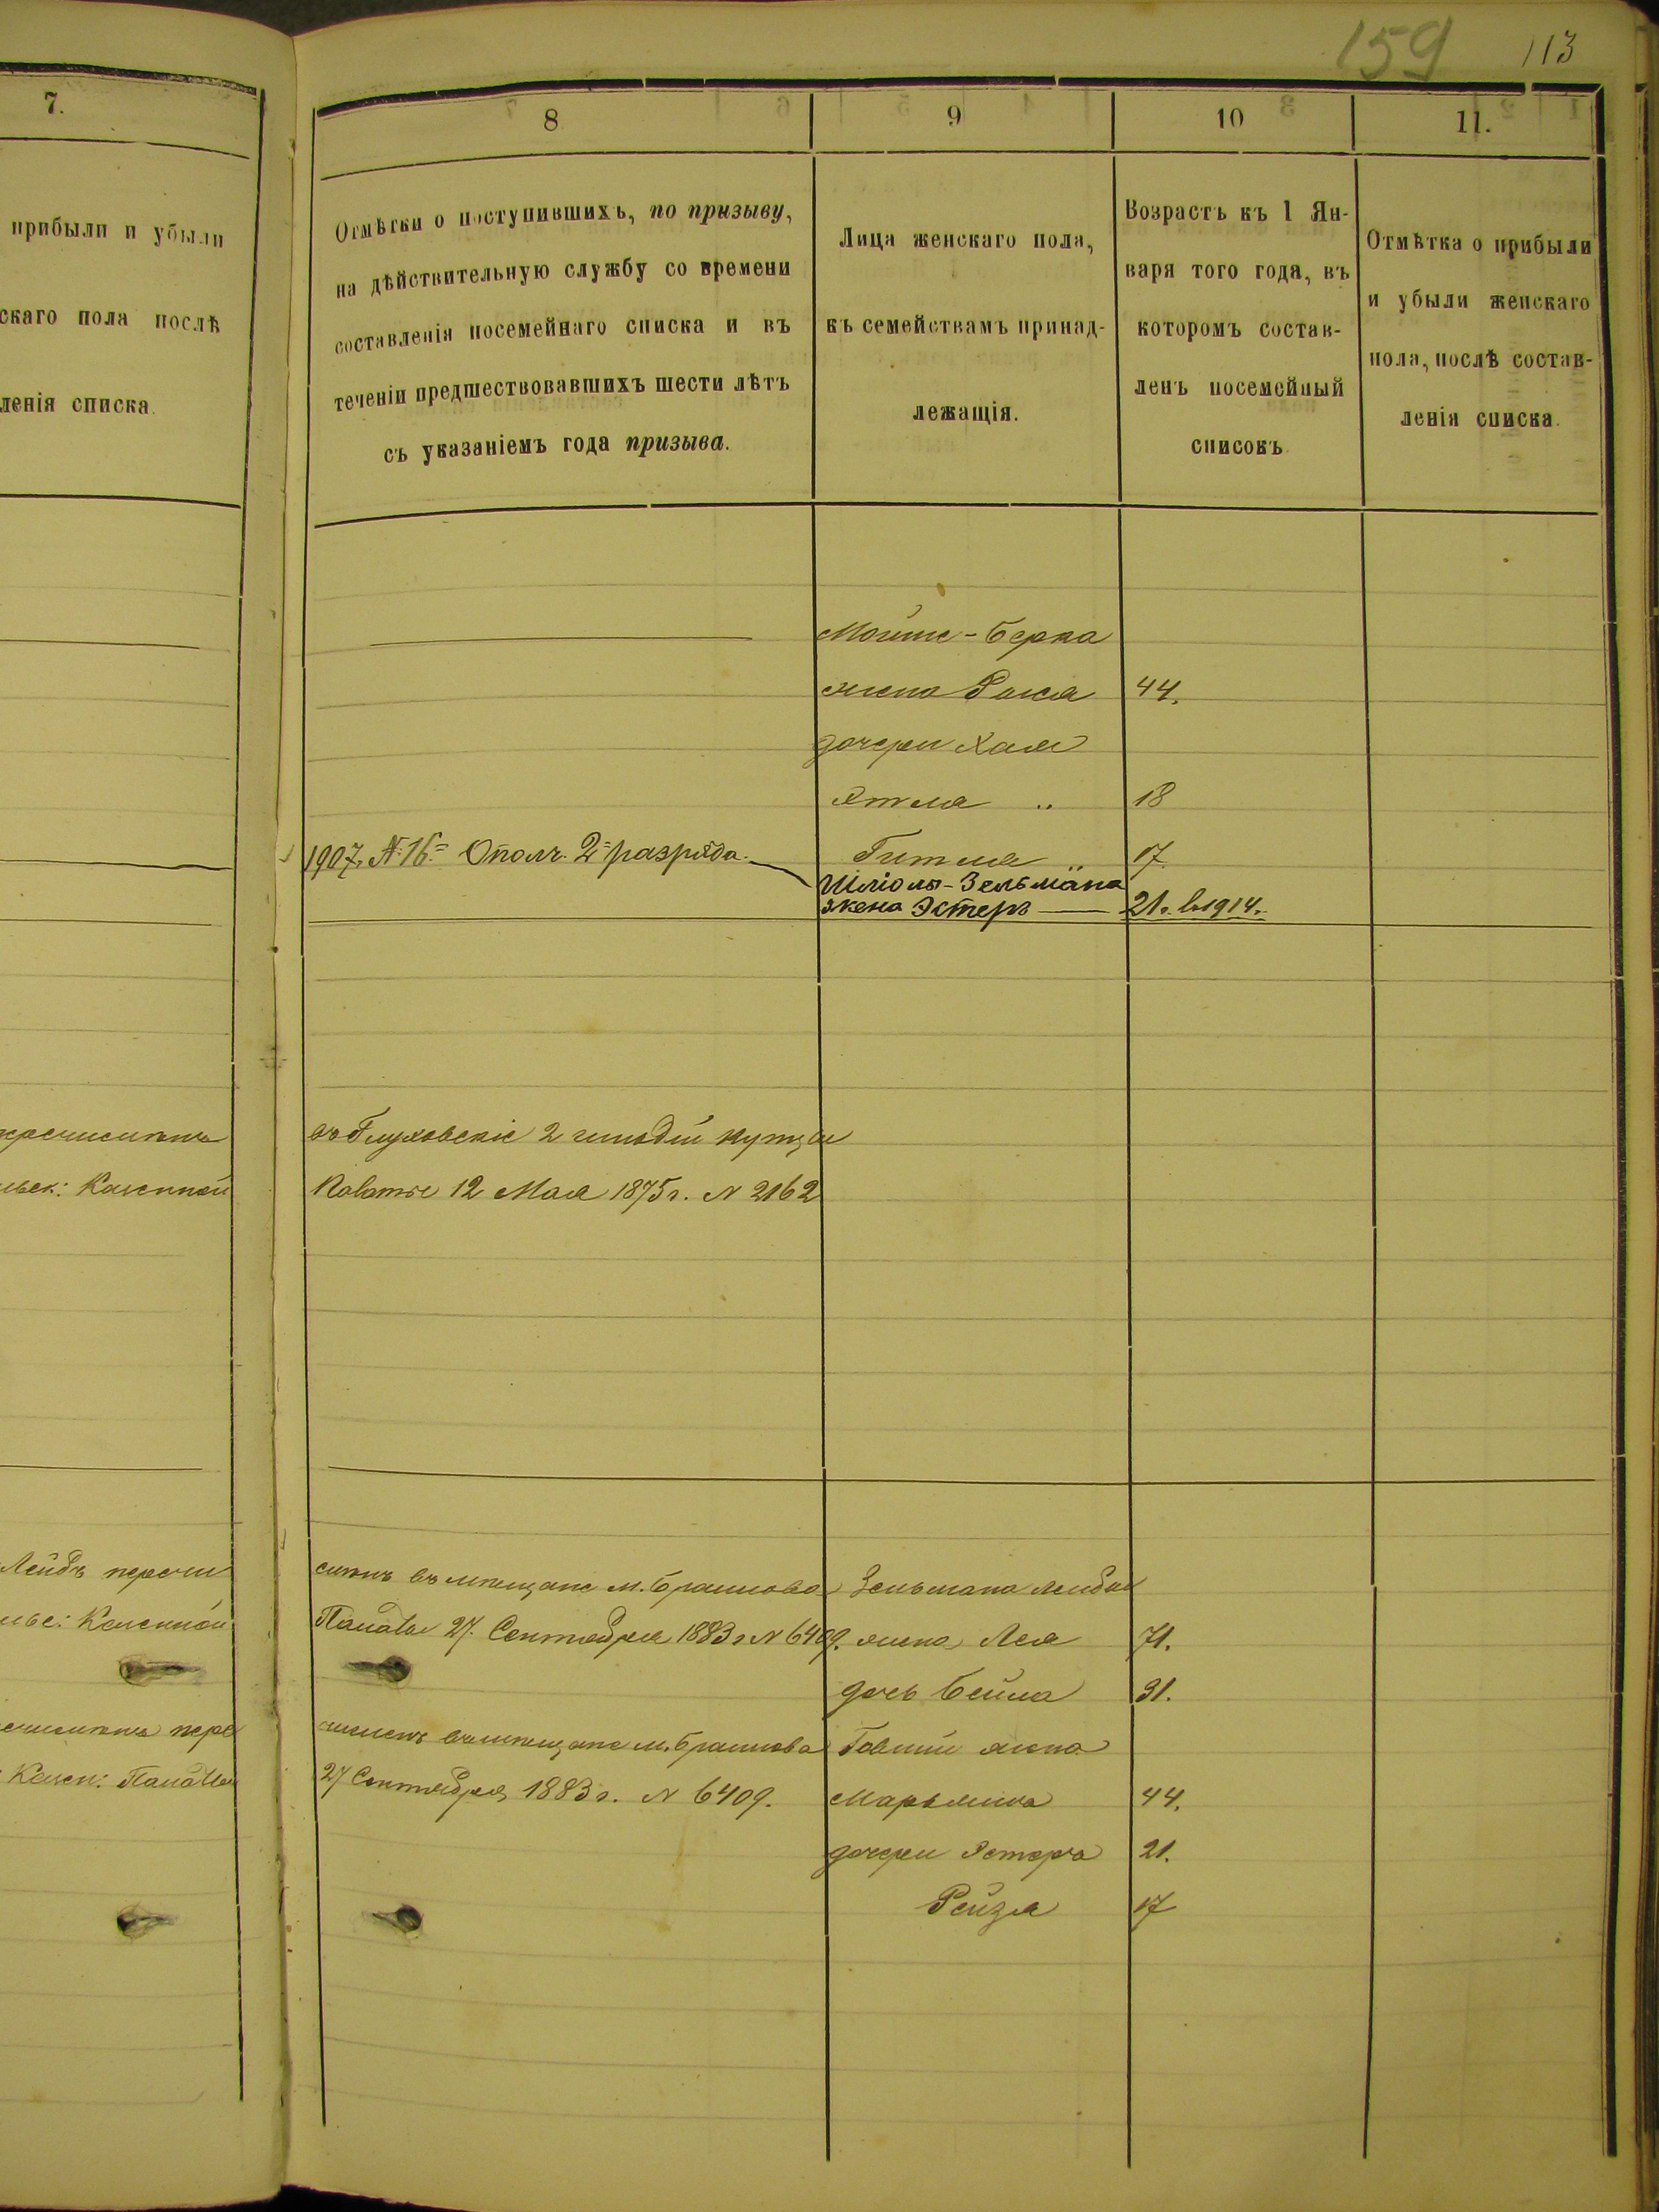 159 113
7.
прибыли и убыли
скаго пола послѣ
ленія списка.
8
Отмѣтки о поступившихъ, по призыву,
на дѣйствительную службу со времени
составленія посемейнаго списка и въ
теченіи предшествовавшихъ шести лѣтъ
съ указаніемъ года призыва.
9
Лица женскаго пола,
къ семействамъ принад-
лежащія.
10
Возрастъ къ 1 Ян-
варя того года, въ
которомъ состав-
ленъ посемейный
списокъ
11.
Отмѣтка о прибыли
и убыли женскаго
пола, послѣ состав-
ленія списка.
Мойше-Берка
жена Рася 44.
дочери Хая
Этля „ 18
1907. № 16= Ополч. 2= разряда. Гитля „ 17
Шліомы-Зельмана
жена Эстеръ — 21. в. 1914.
въ Глуховскіе 2 гильдіи купцы
Казенной Палатою 12 Мая 1875 г. N 2162
Лейбъ перечи сленъ въ мѣщане м. Браилова Зельмана Лейбы
Казенной Палаты 27. Сентября 1883 г N 6409. жена Лея 71.
дочь Бейла 31.
численъ въ мѣщане м. Браилова Говшіи жена
Казен: Палаты 27 Сентября 1883 г. N 6409. Марьяма 44.
дочери Эстера 21.
Рейзя 17